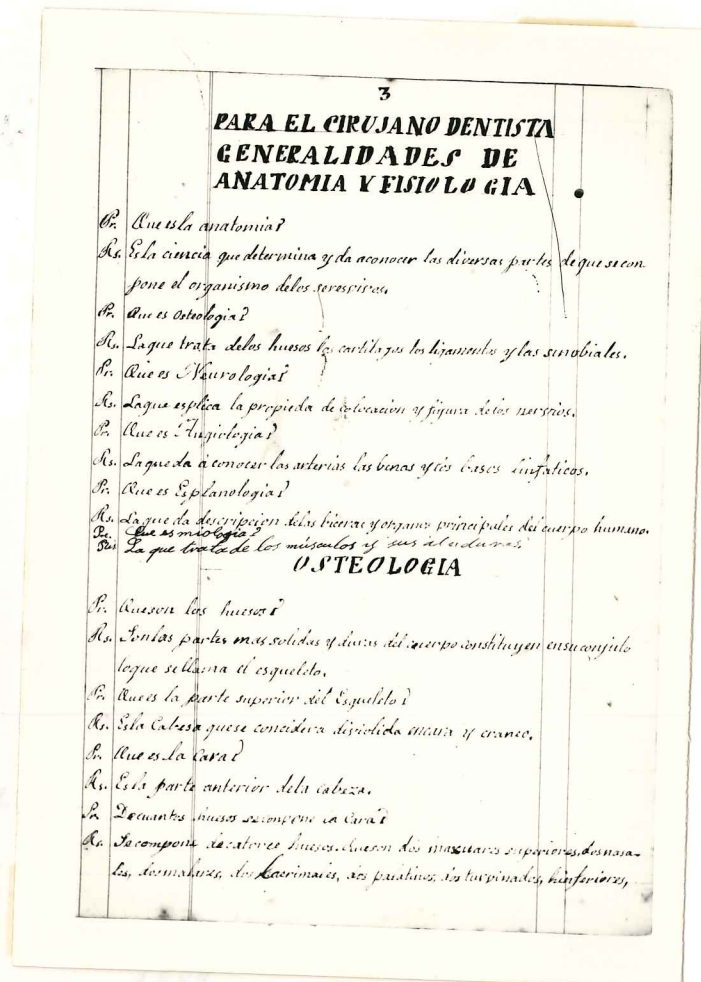 3
PARA EL CIRUJANO DENTISTA
GENERALIDADES DE
ANATOMIA Y FISIOLOGIA
Pr. Que es la anatomia?
Rs. Es la ciencia que determina y da aconocer las diversas partes de que se con
pone el organismo delos seresvivos.
Pr. Que es Osteologia?
Rs. La que trata delos huesos los cartilagos los ligamentos y las sinobiales.
Pr. Que es Neurologia?
Rs. La que esplica la propieda de colocacion y figura delos nervios.
Pr. Que es Angiologia?
Rs. La que da á conocer las arterias las benas y los basos linfaticos.
Pr. Que es Esplanologia?
Rs. La que da descripcion delas biceras y organos principales del cuerpo humano.
Pr. Que es miologia?
Rs La que trata de los músculos y sus ataduras.
OSTEOLOGIA
Pr. Que son los huesos?
Rs. Son las partes mas solidas y duras del cuerpo constituyen ensu conjuto
loque se llama el esqueleto.
Pr. Que es la parte superior del Esqueleto?
Rs. Es la Cabesa que se concidera dividida encara y craneo.
Pr. Que es la Cara?
Rs. Es la parte anterior dela cabeza.
Pr. De cuantos huesos secompone la Cara?
Rs. Se compone de catorce huesos. Que son dos maxilares superiores, dos nasa-
les, dos malares, dos Lacrimales, dos palatinos, dos turvinados, hinferiores,